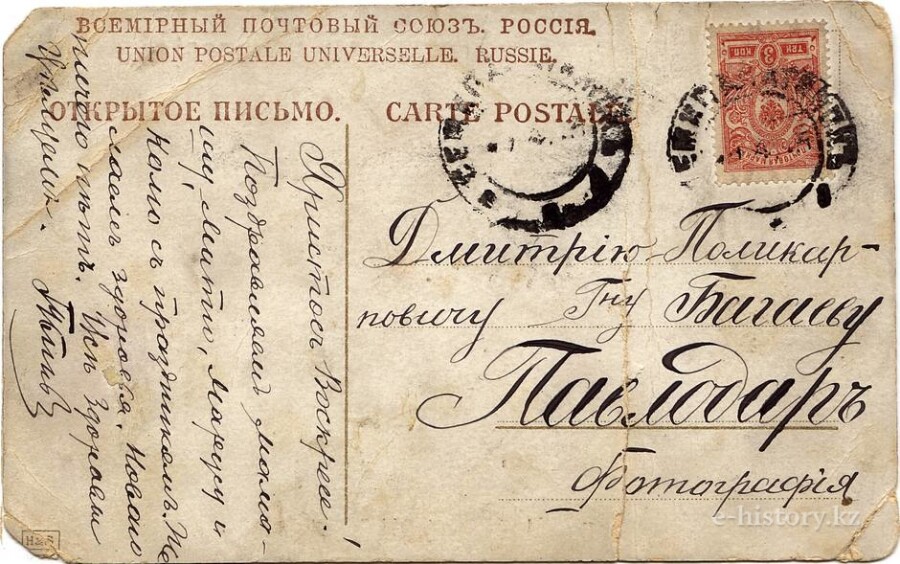 ВСЕМІРНЫЙ ПОЧТОВЫЙ СОЮЗЪ. РОССІЯ.
UNION POSTALE UNIVERSELLE. RUSSIE.
ОТКРЫТОЕ ПИСЬМО. CARTE POSTALE.
Христосъ Воскресе!
Поздравляемъ мама-
шу, Митю, Марусу и
Колю съ праздникомъ. Же
лаемъ здоровья. Новаго
ничего нѣтъ. Всѣ здоровы
Цѣлуемъ.
Дмитрію Поликар-
повичу Гну Багаеву
Павлодаръ
Фотографія
ТРИ 3 КОП
e-history.kz